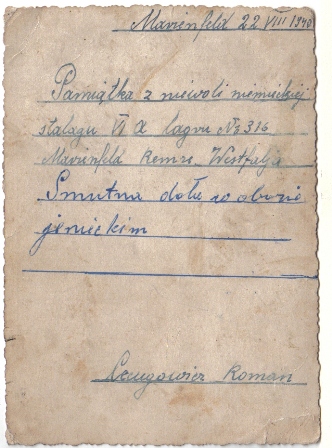 Marienfeld 22 VIII 1940
Pamiątka z niewoli niemieckiej
stalagu VI A lagru No 316
Marienfeld Westfalja
Smutna dola w obozie
jenieckim
Roman